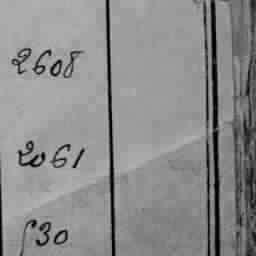 2608
2061
530